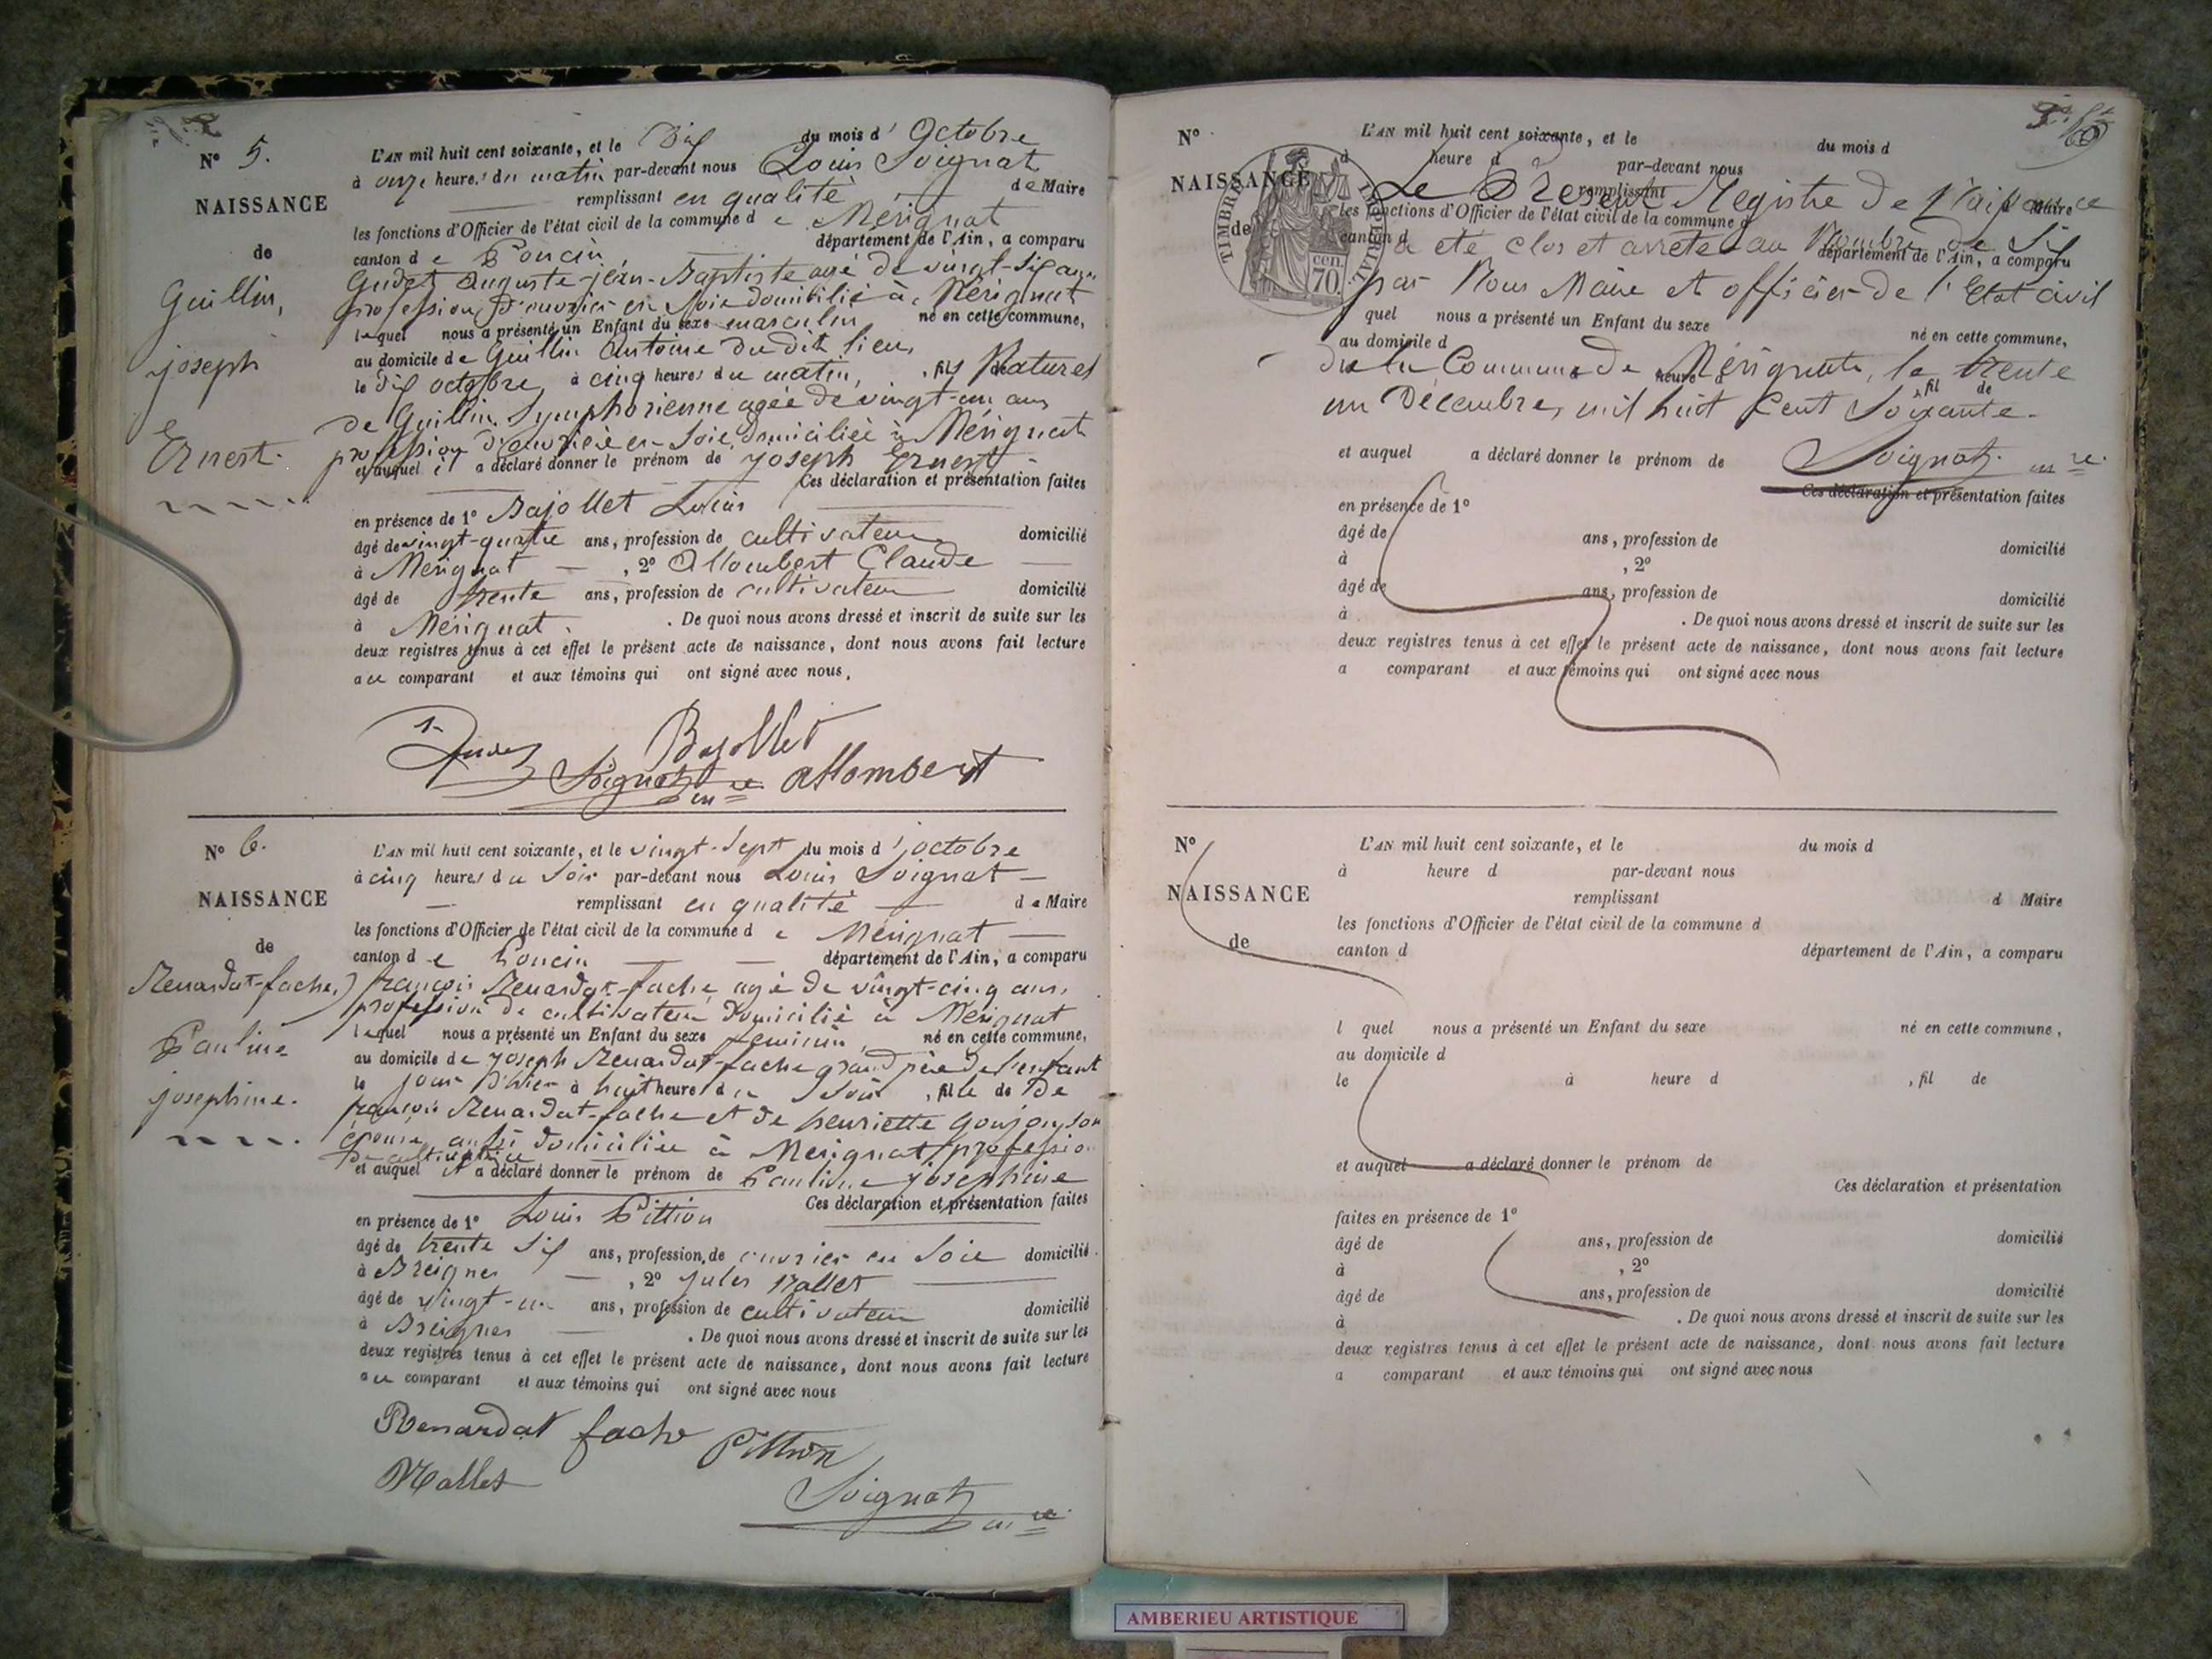 N° 5.
NAISSANCE
de
Guillin,
joseph
Ernest.
L'AN mil huit cent soixante, et le Dix du mois d' Octobre
à onze heures du matin par-devant nous Louis Soignat
remplissant en qualité de Maire
les fonctions d'Officier de l'état civil de la commune de Mérignat
canton de Poncin département de l'Ain, a comparu
Auguste-jean-Baptiste agé de vingt-six ans
profession d'ouvrier en Soie domicilié à Mérignat
lequel nous a présenté un Enfant du sexe masculin né en cette commune,
au domicile de Guillin Antoine du dit lieu,
le dix octobre, à cinq heures du matin, fils Naturel
de Guillin Symphorienne agée de vingt-un ans
profession d'ouvrière en Soie, domiciliée à Mérignat
et auquel il a déclaré donner le prénom de joseph Ernest
Ces déclaration et présentation faites
en présence de 1° Bajollet Louis
âgé de vingt-quatre ans, profession de cultivateur domicilié
à Mérignat , 2° Allombert Claude
âgé de trente ans, profession de cultivateur domicilié
à Mérignat . De quoi nous avons dressé et inscrit de suite sur les
deux registres tenus à cet effet le présent acte de naissance, dont nous avons fait lecture
au comparant et aux témoins qui ont signé avec nous.
Bajollet
Soignat mre allombert
N° 6.
NAISSANCE
de
Renardat-fache,
Pauline
josephine.
L'AN mil huit cent soixante, et le vingt-Sept du mois d'octobre
à cinq heures du Soir par-devant nous Louis Soignat
remplissant en qualité de Maire
les fonctions d'Officier de l'état civil de la commune de Mérignat
canton de Poncin département de l'Ain, a comparu
françois Renardat-fache agé de vingt-cinq ans,
profession de cultivateur domicilié à Mérignat
lequel nous a présenté un Enfant du sexe feminin, né en cette commune,
au domicile de joseph Renardat-fache grand père de l'enfant
le jour d'hier à huit heures du Soir , fille de De
françois Renardat-fache et de henriette Goujon son
épouse, aussi domiciliée à Mérignat, profession
De cultivatrice
et auquel il a déclaré donner le prénom de Pauline josephine
Ces déclaration et présentation faites
en présence de 1° Louis Pittion
âgé de trente Six ans, profession de ouvrier en Soie domicilié
à Breignes , 2° jules Mallet
âgé de vingt-un ans, profession de cultivateur domicilié
à Breignes . De quoi nous avons dressé et inscrit de suite sur les
deux registres tenus à cet effet le présent acte de naissance, dont nous avons fait lecture
au comparant et aux témoins qui ont signé avec nous
Renardat fache Pittion
Mallet
Soignat mre
N°
NAISSANCE
de
TIMBRE IMPÉRIAL
70 cen.
L'AN mil huit cent soixante, et le du mois d
à heure d par-devant nous
Le Présent Registre de Naissance
remplissant d Maire
les fonctions d'Officier de l'état civil de la commune d
canton d département de l'Ain, a comparu
a été clos et arrêté au Nombre de Six
par Nous Maire et officier de l'Etat civil
quel nous a présenté un Enfant du sexe né en cette commune,
au domicile d
de la Commune de Mérignat, le trente
heure d , fil de
un Décembre, mil huit Cent Soixante.
et auquel a déclaré donner le prénom de
Soignat mre.
Ces déclaration et présentation faites
en présence de 1°
âgé de ans, profession de domicilié
à , 2°
âgé de ans, profession de domicilié
à . De quoi nous avons dressé et inscrit de suite sur les
deux registres tenus à cet effet le présent acte de naissance, dont nous avons fait lecture
a comparant et aux témoins qui ont signé avec nous
N°
NAISSANCE
de
L'AN mil huit cent soixante, et le du mois d
à heure d par-devant nous
remplissant d Maire
les fonctions d'Officier de l'état civil de la commune d
canton d département de l'Ain, a comparu
l quel nous a présenté un Enfant du sexe né en cette commune,
au domicile d
le à heure d , fil de
et auquel a déclaré donner le prénom de
Ces déclaration et présentation
faites en présence de 1°
âgé de ans, profession de domicilié
à , 2°
âgé de ans, profession de domicilié
à . De quoi nous avons dressé et inscrit de suite sur les
deux registres tenus à cet effet le présent acte de naissance, dont nous avons fait lecture
a comparant et aux témoins qui ont signé avec nous
AMBERIEU ARTISTIQUE